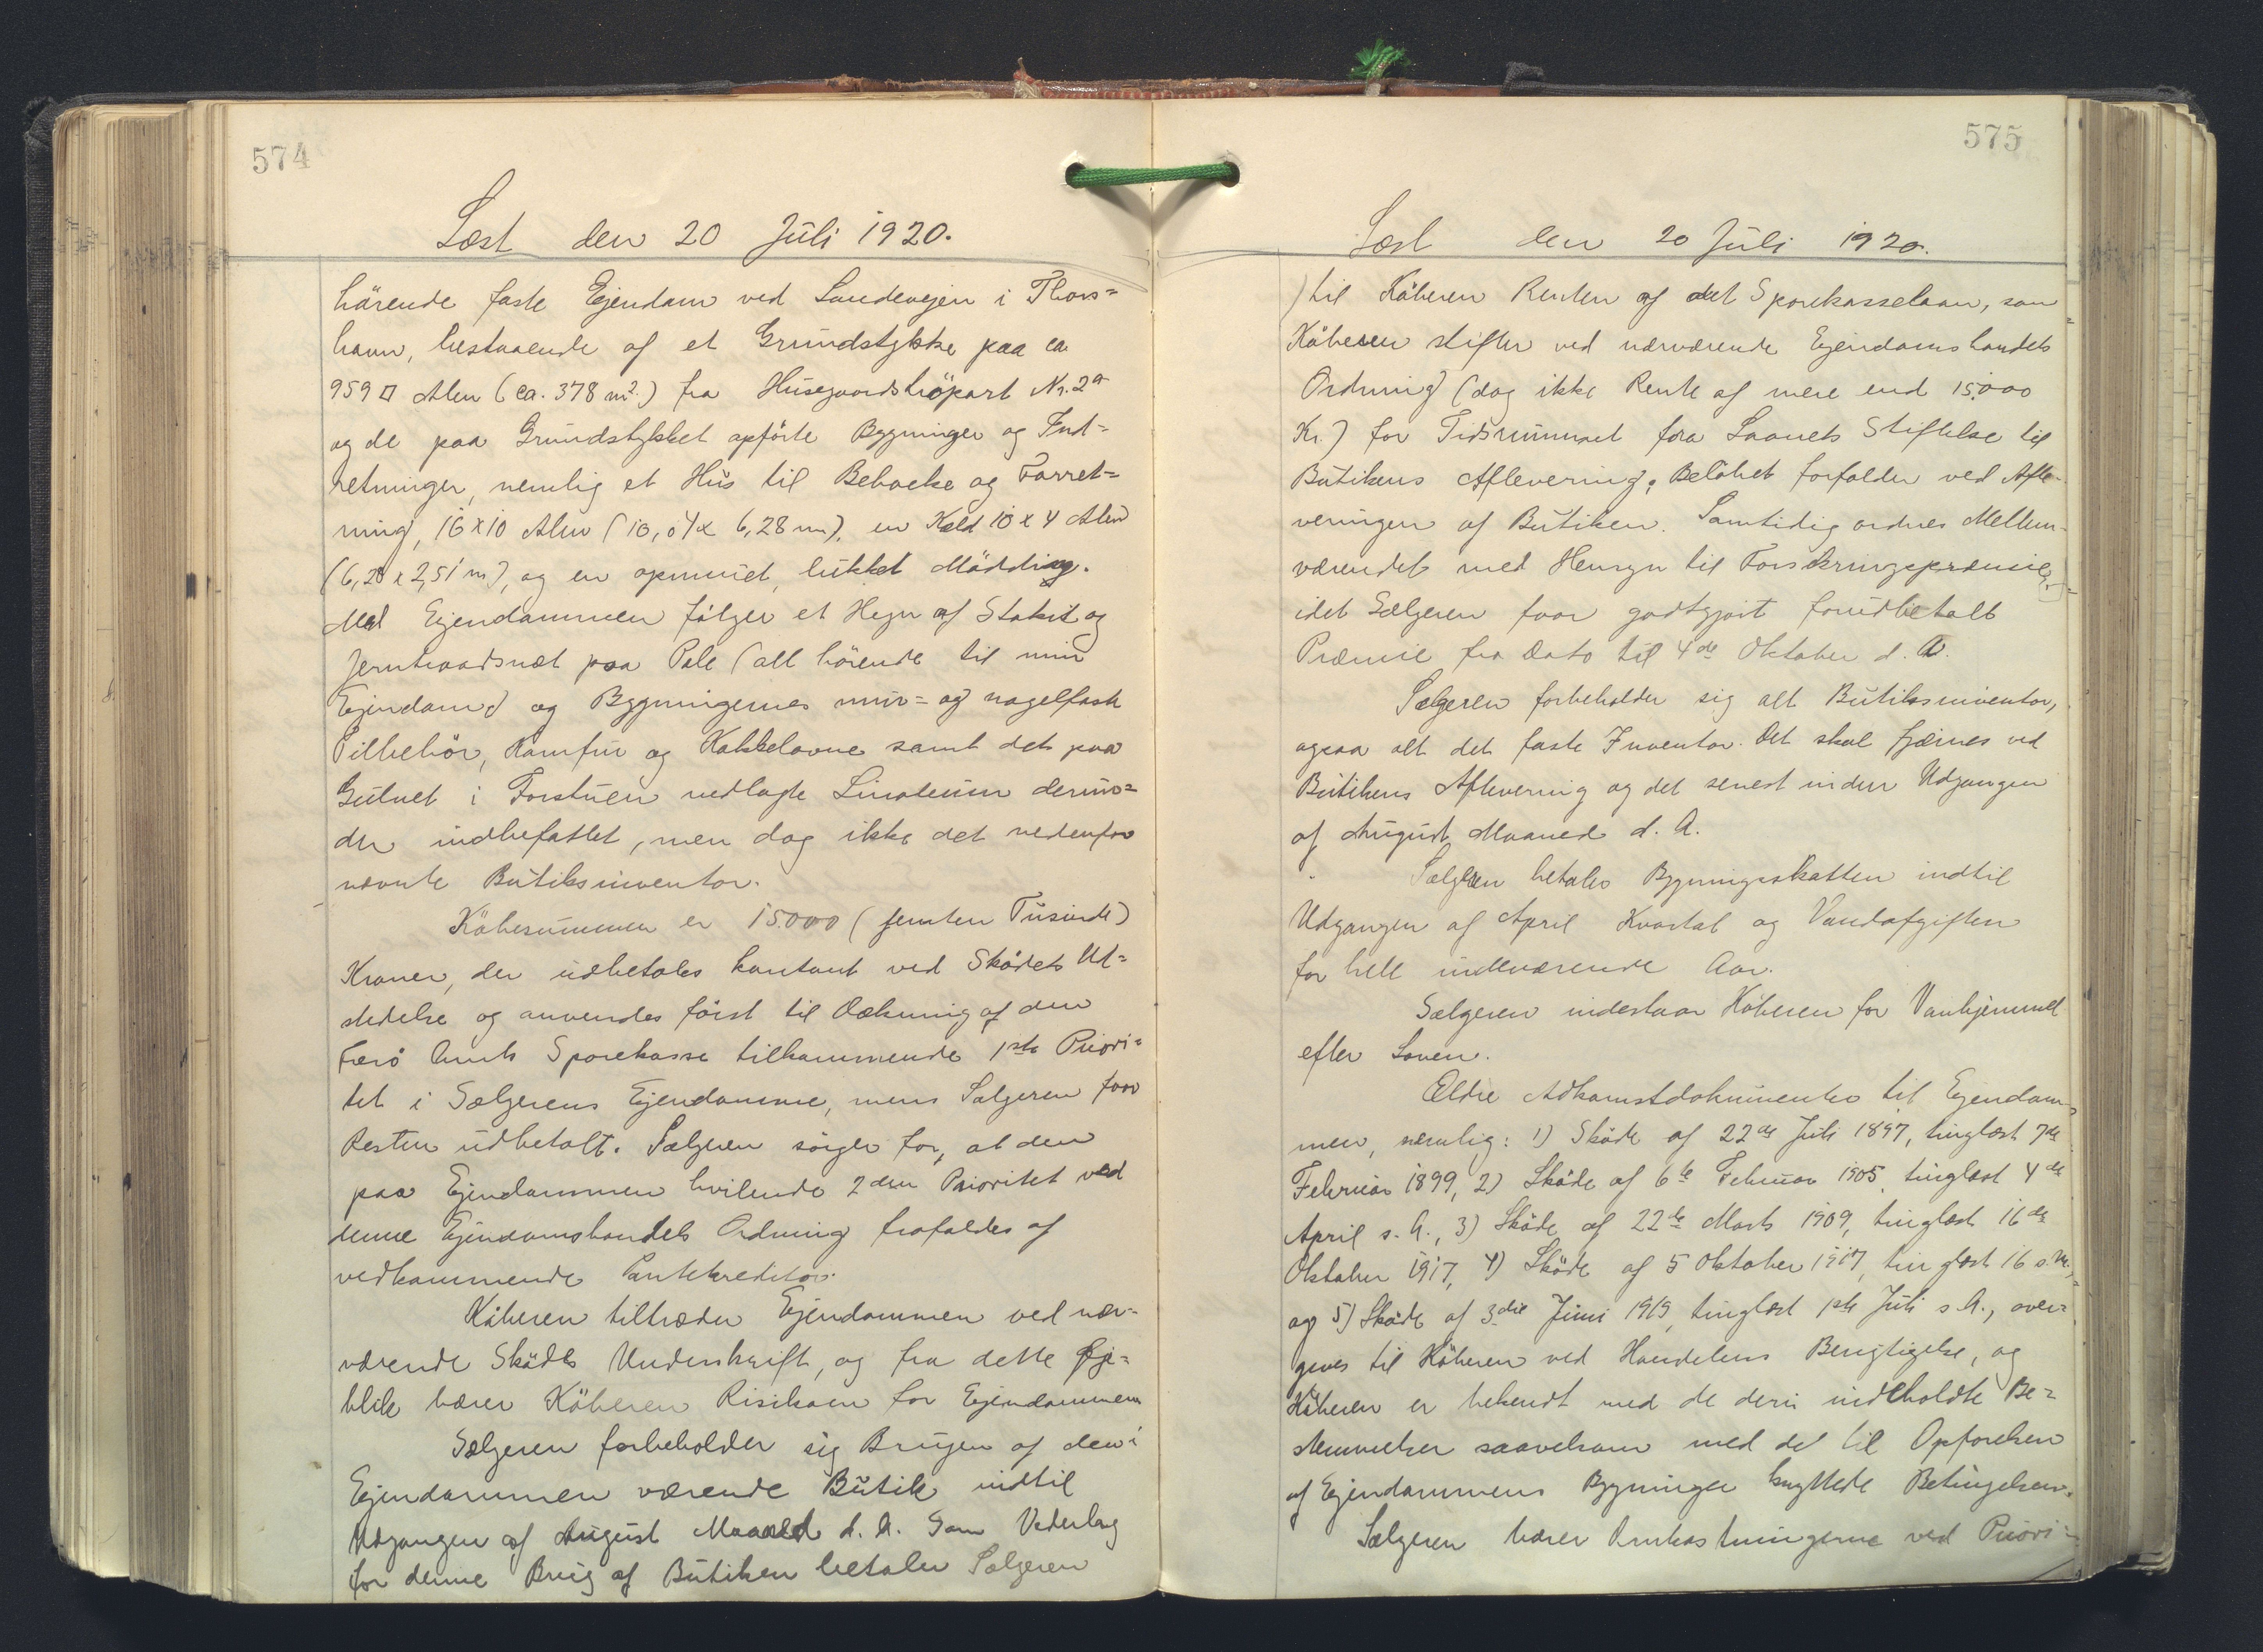 574
Læst den 20 Juli 1920.
hörende faste Ejendom ved Landevejen i Thors=
havn, bestaaende af et Grundstykke paa ca
959 □ Alen (ca. 378 m².) fra Husegaards tröpart Nr. 2a
og de paa Grundstykket opförte Bygninger og Ind=
retninger, nemlig et Hus til Beboelse og Forret=
ning, 16 x 10 Alen (10,04 x 6,28 m), en Kæld 10 x 4 Alen
(6,28 x 2,51 m), og en opmuret, lukket Mödding.
Med Ejendommen fölger et Hegn af Stakit og
Jerntraadsnet paa Pæle (alt hörende til min
Ejendom) og Bygningernes mur= og nagelfaste
Tilbehör, Komfur og Kakkelovne samt det paa
Gulvet i Forstuen nedlagte Linoleum derun=
der indbefattet, men dog ikke det nedenfor
nævnte Butiksinventar.
Köbesummen er 15000 (femten Tusinde)
Kroner, der udbetales kontant ved Sködets Ud=
stedelse og anvendes först til Dækning af den
Færö Amts Sparekasse tilkommende 1ste Priori=
tet i Sælgerens Ejendomme, mens Sælgeren faar
Resten udbetalt. Sælgeren sörger for, at den
paa Ejendommen hvilende 2den Prioritet ved
denne Ejendomshandels Ordning frafaldes af
vedkommende Pantekreditor.
Köberen tiltræder Ejendommen ved nær=
værende Sködes Underskrift, og fra dette Øje=
blik bærer Köberen Risikoen for Ejendommen
Sælgeren forbeholder sig Brugen af den i
Ejendommen værende Butik indtil
Udgangen af August Maaned d. A. Som Vederlag
for denne Brug af Butiken betaler Sælgeren
575
Læst den 20 Juli 1920.
til Köberen Renten af det Sparekasselaan, som
Köberen stifter ved nærværende Ejendomshandels
Ordning (dog ikke Rente af mere end 15.000
Kr.) for Tidsrummet fra Laanets Stiftelse til
Butikens Aflevering; Belöbet forfalder ved Afle-
veringen af Butiken. Samtidig ordnes Mellem-
værendet med Hensyn til Forsikringspræmie,
idet Sælgeren faar godtgjort forudbetalt
Præmie fra Dato til 4de Oktober d. A.
Sælgeren forbeholder sig alt Butiksinventar,
ogsaa alt det faste Inventar. Det skal fjærnes ved
Butikens Aflevering og det senest inden Udgangen
af August Maaned d. A.
Sælgeren betaler Bygningsskatten indtil
Udgangen af April Kvartal og Vandafgiften
for hele indeværende Aar.
Sælgeren indestaar Köberen for Vanhjemmel
efter Loven.
Ældre Adkomstdokumenter til Ejendom=
men, nemlig: 1) Sköde af 22de Juli 1897, tinglæst 7de
Februar 1899, 2) Sköde af 6te Februar 1905, tinglæst 4de
April s. A., 3) Sköde af 22de Marts 1909, tinglæst 16de
Oktober 1917, 4) Sköde af 5 Oktober 1917, tinglæst 16 s. M.,
og 5) Sköde af 3die Juni 1919, tinglæst 1ste Juli s. A., over=
gives til Köberen ved Handelens Berigtigelse, og
Köberen er bekendt med de deri indeholdte Be=
stemmelser saavelsom med de til Opförelsen
af Ejendommens Bygninger knyttede Betingelser.
Sælgeren bærer Omkostningerne ved Priori=